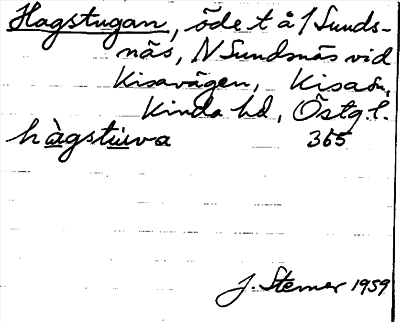 Hagstugan, öde t å 1 Sunds-
näs, N Sundsnäs vid
Kisavägen, Kisa sn,
Kinda hd, Östg.l.
hàgstuva 365
J. Sterner 1959